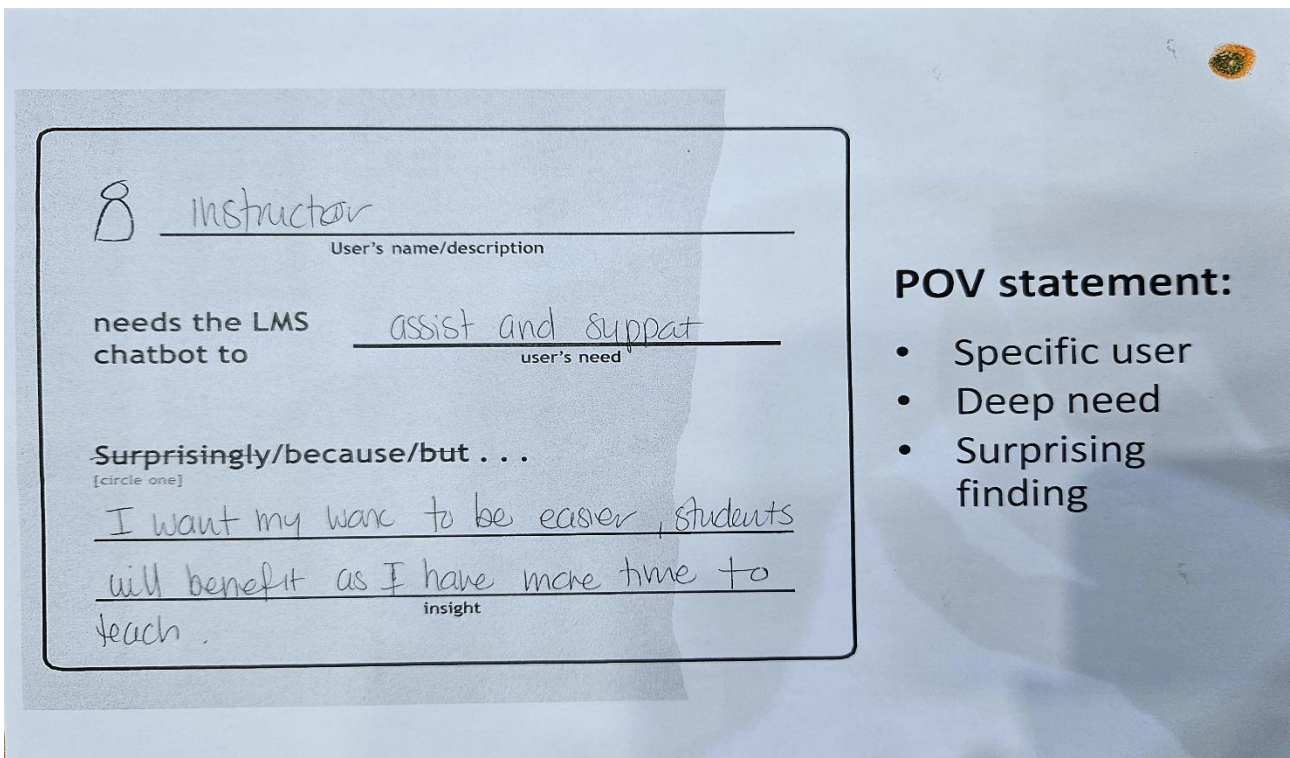 instructor
User's name/description
needs the LMS
chatbot to
assist and support
user's need
Surprisingly/because/but . . .
[circle one]
I want my work to be easier, students
will benefit as I have more time to
insight
teach.
POV statement:
• Specific user
• Deep need
• Surprising
finding